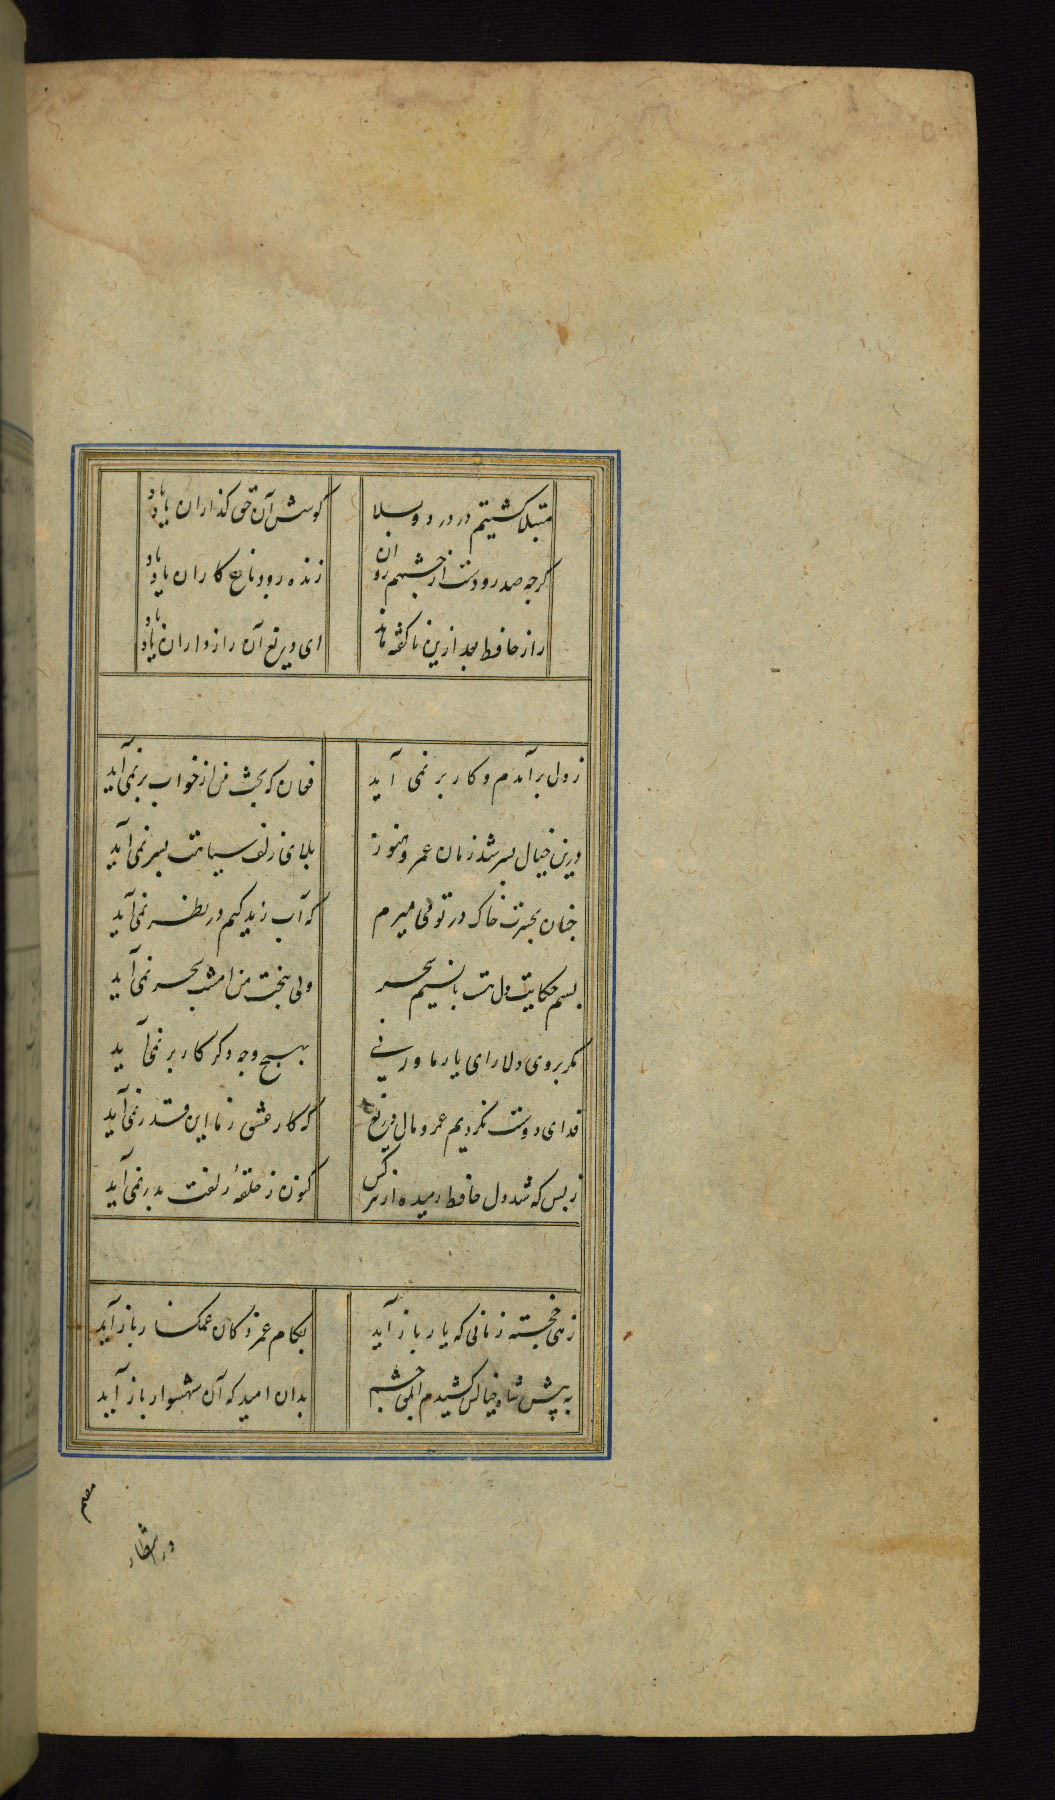 مبتلا گشتیم در درد و بلا
کوشش آن حق گذاران یاد باد
گرچه صد رودست از چشمم روان
زنده رود باغ کاران یاد باد
راز حافظ بعد ازین ناگفته ماند
ای دریغ آن رازداران یاد باد
ز دل برآمدم و کار بر نمی آید
فغان که بخت من از خواب بر نمی آید
درین خیال بسر شد زمان عمر و هنوز
بلای زلف سیاهت بسر نمی آید
چنان بحسرت خاک در تو می میرم
که آب زندگیم در نظر نمی آید
بسم حکایت دل هست با نسیم سحر
ولی ببخت من امشب سحر نمی آید
مگر بروی دلارای یار ما ورنی
بهیچ وجه دگر کار بر نمی آید
فدای دوست نکردیم عمر و مال دریغ
که کار عشق ز ما این قدر نمی آید
ز بس که شد دل حافظ رمیده از هر کس
کنون ز حلقه زلفت بدر نمی آید
زهی خجسته زمانی که یار باز آید
بکام غمزدگان غمگسار باز آید
به پیش شاه خیالش کشیدم ابلق چشم
بدان امید که آن شهسوار باز آید
در انتظار